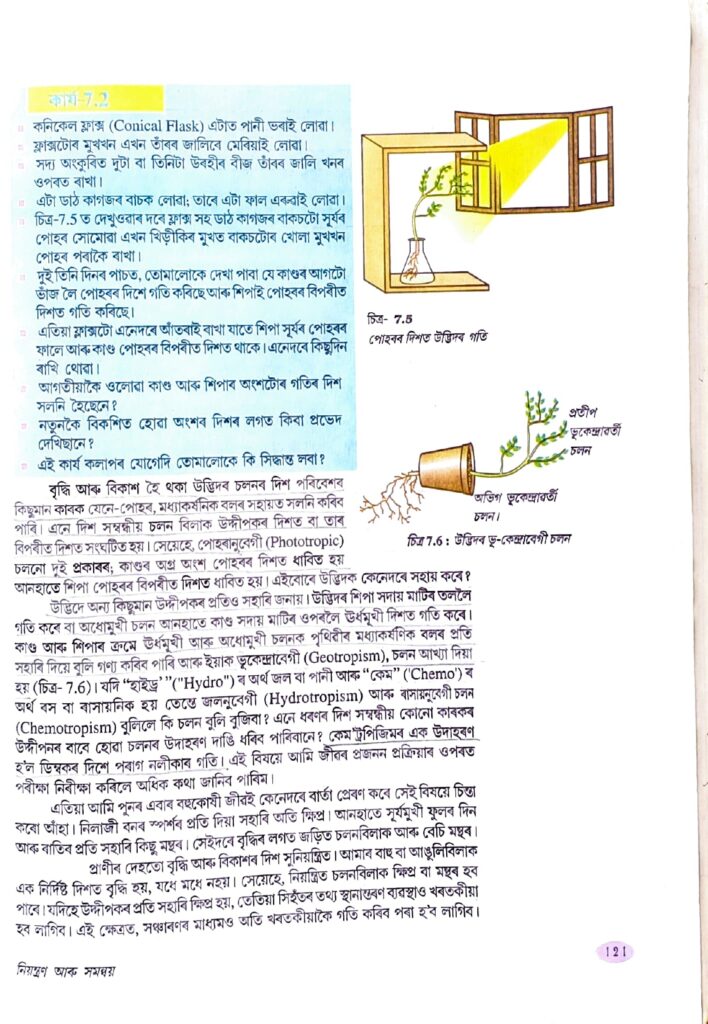 কাৰ্য-7.2
কনিকেল ফ্লাস্ক (Conical Flask) এটাত পানী ভৰাই লোৱা।
ফ্লাস্কটোৰ মুখখন এখন তাঁৰৰ জালিৰে মেৰিয়াই লোৱা।
সদ্য অংকুৰিত দুটা বা তিনিটা উৰহীৰ বীজ তাঁৰৰ জালি খনৰ
ওপৰত ৰাখা।
এটা ডাঠ কাগজৰ বাচক লোৱা; তাৰে এটা ফাল এৰুৱাই লোৱা।
চিত্ৰ-7.5 ত দেখুওৱাৰ দৰে ফ্লাস্ক সহ ডাঠ কাগজৰ বাকচটো সূৰ্যৰ
পোহৰ সোমোৱা এখন খিড়ীকিৰ মুখত বাকচটোৰ খোলা মুখখন
পোহৰ পৰাকৈ ৰাখা।
দুই তিনি দিনৰ পাচত, তোমালোকে দেখা পাবা যে কাণ্ডৰ আগটো
ভাঁজ লৈ পোহৰৰ দিশে গতি কৰিছে আৰু শিপাই পোহৰৰ বিপৰীত
দিশত গতি কৰিছে।
এতিয়া ফ্লাস্কটো এনেদৰে আঁতৰাই ৰাখা যাতে শিপা সূৰ্যৰ পোহৰৰ
ফালে আৰু কাণ্ড পোহৰৰ বিপৰীত দিশত থাকে। এনেদৰে কিছুদিন
ৰাখি থোৱা।
আগতীয়াকৈ ওলোৱা কাণ্ড আৰু শিপাৰ অংশটোৰ গতিৰ দিশ
সলনি হৈছেনে?
নতুনকৈ বিকশিত হোৱা অংশৰ দিশৰ লগত কিবা প্ৰভেদ
দেখিছানে?
এই কাৰ্য কলাপৰ যোগেদি তোমালোকে কি সিদ্ধান্ত লবা?
চিত্ৰ- 7.5
পোহৰৰ দিশত উদ্ভিদৰ গতি
প্ৰতীপ
ভূকেন্দ্ৰাবৰ্তী
চলন
অভিগ ভূকেন্দ্ৰাবৰ্তী
চলন।
চিত্ৰ 7.6 : উদ্ভিদৰ ভূ-কেন্দ্ৰাবেগী চলন
বৃদ্ধি আৰু বিকাশ হৈ থকা উদ্ভিদৰ চলনৰ দিশ পৰিবেশৰ
কিছুমান কাৰক যেনে-পোহৰ, মধ্যাকৰ্ষনিক বলৰ সহায়ত সলনি কৰিব
পাৰি। এনে দিশ সম্বন্ধীয় চলন বিলাক উদ্দীপকৰ দিশত বা তাৰ
বিপৰীত দিশত সংঘটিত হয়। সেয়েহে, পোহৰানুবেগী (Phototropic)
চলনো দুই প্ৰকাৰৰ; কাণ্ডৰ অগ্ৰ অংশ পোহৰৰ দিশত ধাবিত হয়
আনহাতে শিপা পোহৰৰ বিপৰীত দিশত ধাবিত হয়। এইবোৰে উদ্ভিদক কেনেদৰে সহায় কৰে?
উদ্ভিদে অন্য কিছুমান উদ্দীপকৰ প্ৰতিও সহাৰি জনায়। উদ্ভিদৰ শিপা সদায় মাটিৰ তললৈ
গতি কৰে বা অধোমুখী চলন আনহাতে কাণ্ড সদায় মাটিৰ ওপৰলৈ ঊৰ্ধমুখী দিশত গতি কৰে।
কাণ্ড আৰু শিপাৰ ক্ৰমে ঊৰ্ধমুখী আৰু অধোমুখী চলনক পৃথিৱীৰ মধ্যাকৰ্ষণিক বলৰ প্ৰতি
সহাৰি দিয়ে বুলি গণ্য কৰিব পাৰি আৰু ইয়াক ভূকেন্দ্ৰাবেগী (Geotropism), চলন আখ্যা দিয়া
হয় (চিত্ৰ- 7.6)। যদি “হাইড্ৰ’ ”("Hydro") ৰ অৰ্থ জল বা পানী আৰু “কেম” ('Chemo') ৰ
অৰ্থ ৰস বা ৰাসায়নিক হয় তেন্তে জলনুবেগী (Hydrotropism) আৰু ৰাসায়নুবেগী চলন
(Chemotropism) বুলিলে কি চলন বুলি বুজিবা? এনে ধৰণৰ দিশ সম্বন্ধীয় কোনো কাৰকৰ
উদ্দীপনৰ বাবে হোৱা চলনৰ উদাহৰণ দাঙি ধৰিব পাৰিবানে? কেম’ট্ৰপিজিমৰ এক উদাহৰণ
হ’ল ডিম্বকৰ দিশে পৰাগ নলীকাৰ গতি। এই বিষয়ে আমি জীৱৰ প্ৰজনন প্ৰক্ৰিয়াৰ ওপৰত
পৰীক্ষা নিৰীক্ষা কৰিলে অধিক কথা জানিব পাৰিম।
এতিয়া আমি পুনৰ এবাৰ বহুকোষী জীৱই কেনেদৰে বাৰ্তা প্ৰেৰণ কৰে সেই বিষয়ে চিন্তা
কৰো আঁহা। নিলাজী বনৰ স্পৰ্শৰ প্ৰতি দিয়া সহাৰি অতি ক্ষিপ্ৰ। আনহাতে সূৰ্যমুখী ফুলৰ দিন
আৰু ৰাতিৰ প্ৰতি সহাৰি কিছু মন্থৰ। সেইদৰে বৃদ্ধিৰ লগত জড়িত চলনবিলাক আৰু বেচি মন্থৰ।
প্ৰাণীৰ দেহতো বৃদ্ধি আৰু বিকাশৰ দিশ সুনিয়ন্ত্ৰিত। আমাৰ বাহু বা আঙুলিবিলাক
এক নিৰ্দিষ্ট দিশত বৃদ্ধি হয়, যধে মধে নহয়। সেয়েহে, নিয়ন্ত্ৰিত চলনবিলাক ক্ষিপ্ৰ বা মন্থৰ হব
পাৰে। যদিহে উদ্দীপকৰ প্ৰতি সহাৰি ক্ষিপ্ৰ হয়, তেতিয়া সিহঁতৰ তথ্য স্থানান্তৰণ ব্যৱস্থাও খৰতকীয়া
হব লাগিব। এই ক্ষেত্ৰত, সঞ্চাৰণৰ মাধ্যমও অতি খৰতকীয়াকৈ গতি কৰিব পৰা হ’ব লাগিব।
121
নিয়ন্ত্ৰণ আৰু সমন্বয়